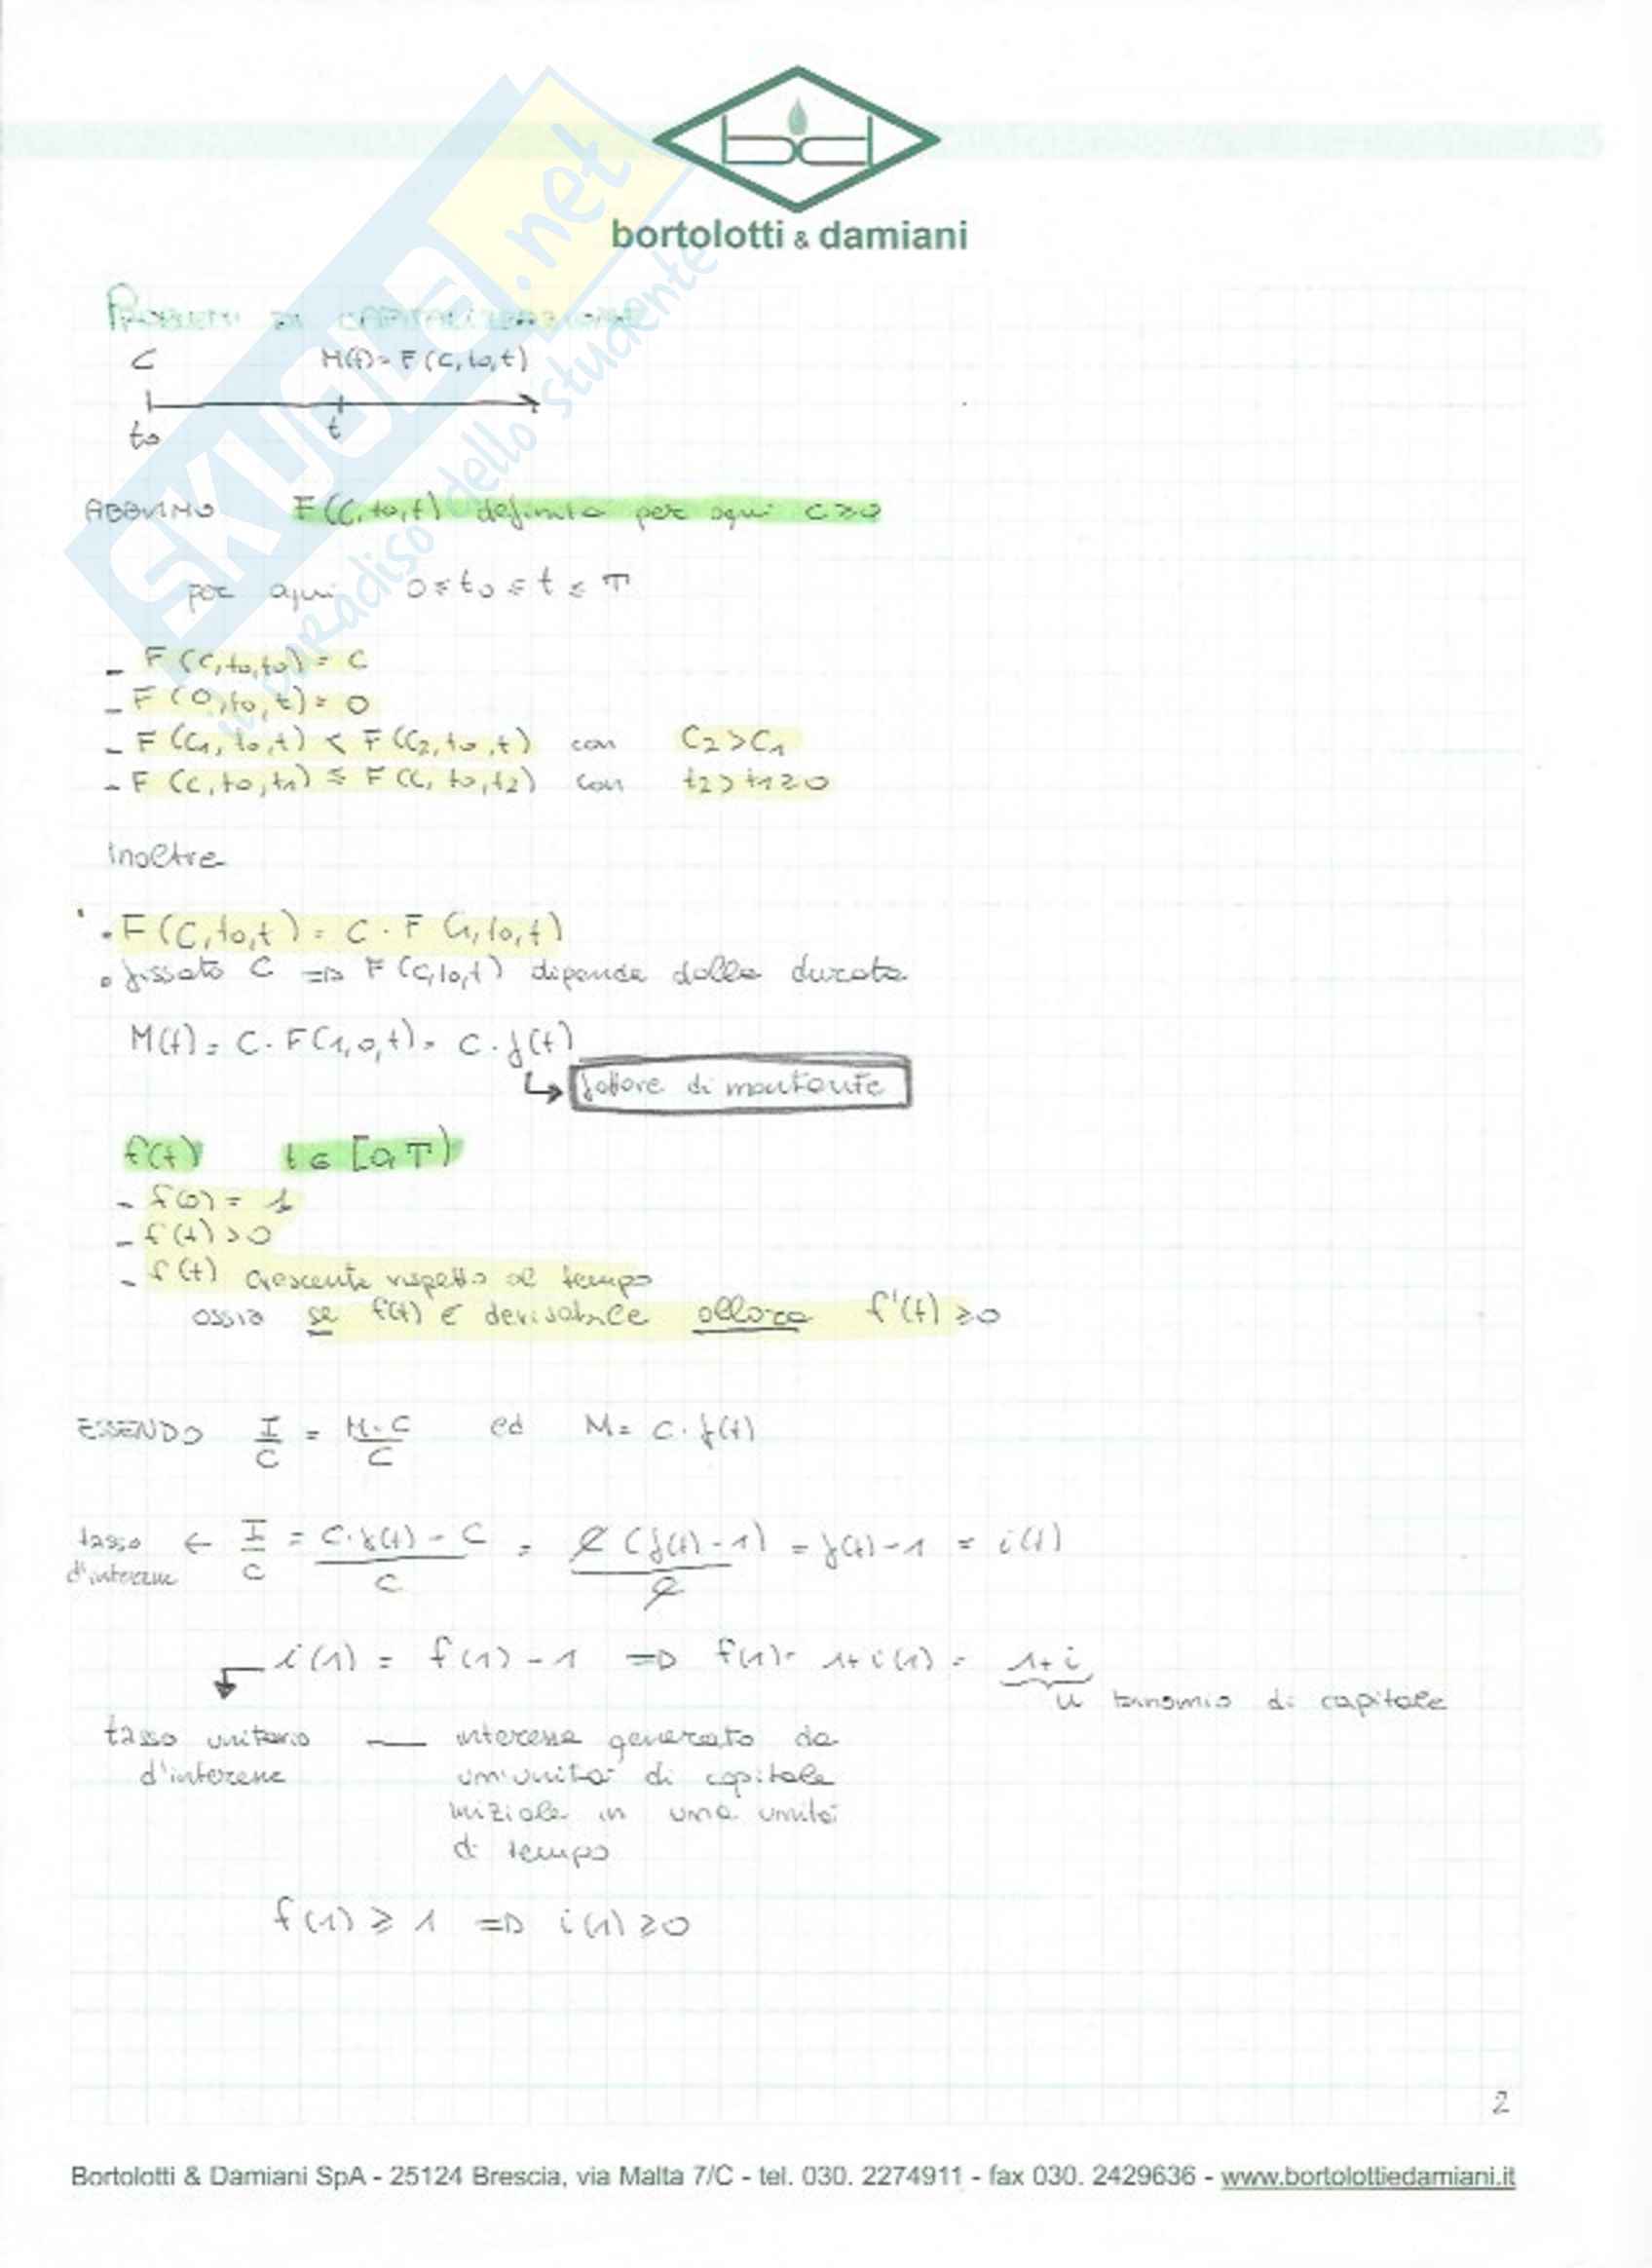 SKUOLA.net
il paradiso dello studente
bortolotti & damiani
PROBLEMI DI CAPITALIZZAZIONE
C M(t) = F(C, to, t)
to t
ABBIAMO F(C, to, t) definita per ogni C ≥ 0
per ogni 0 ≤ to ≤ t ≤ T
- F(C, to, to) = C
- F(0, to, t) = 0
- F(C1, to, t) < F(C2, to, t) con C2 > C1
- F(C, to, t1) ≤ F(C, to, t2) con t2 > t1 ≥ 0
Inoltre
• F(C, to, t) = C · F(1, to, t)
• fissato C => F(C, to, t) dipende dalla durata
M(t) = C · F(1, 0, t) = C · f(t)
↳ fattore di montante
f(t) t ∈ [0, T)
- f(0) = 1
- f(t) > 0
- f(t) crescente rispetto al tempo
ossia se f(t) è derivabile allora f'(t) ≥ 0
ESSENDO I/C = M-C/C ed M = C · f(t)
tasso d'interesse ← I/C = C·f(t) - C / C = C(f(t) - 1) / C = f(t) - 1 = i(t)
i(1) = f(1) - 1 => f(1) = 1 + i(1) = 1 + i
u binomio di capitale
tasso unitario — interesse generato da
d'interesse un'unità di capitale
iniziale in una unità
di tempo
f(1) ≥ 1 => i(1) ≥ 0
2
Bortolotti & Damiani SpA - 25124 Brescia, via Malta 7/C - tel. 030. 2274911 - fax 030. 2429636 - www.bortolottiedamiani.it